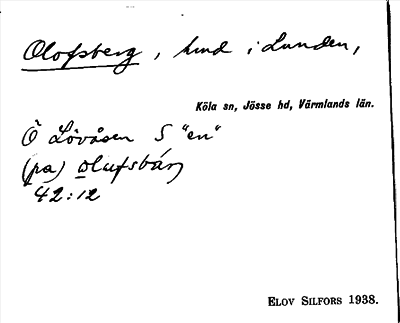 Olofsberg, hmd i Lunden,
Köla sn, Jösse hd, Värmlands län.
Ö Lövåsen S "en"
(pa) olufsbárj
42:12
ELOV SILFORS 1938.